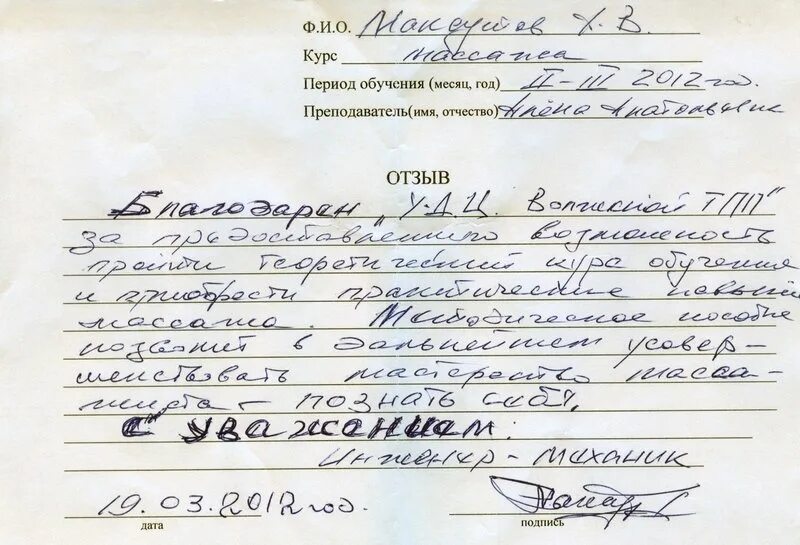 Ф.И.О. Максутов Х. В.
Курс массажа
Период обучения (месяц, год) II-III 2012 год.
Преподаватель(имя, отчество) Алёна Анатольевна
ОТЗЫВ
Благодарен „У-Д.Ц. Волжской ТПП"
за предоставленную возможность
пройти теоретический курс обучения
и приобрести практические навыки
массажа. Методическое пособие
позволит в дальнейшем усовер-
шенствовать мастерство масса-
жиста – познать себя.
С уважением:
Инженер-механик
19.03.2012 год.
дата подпись